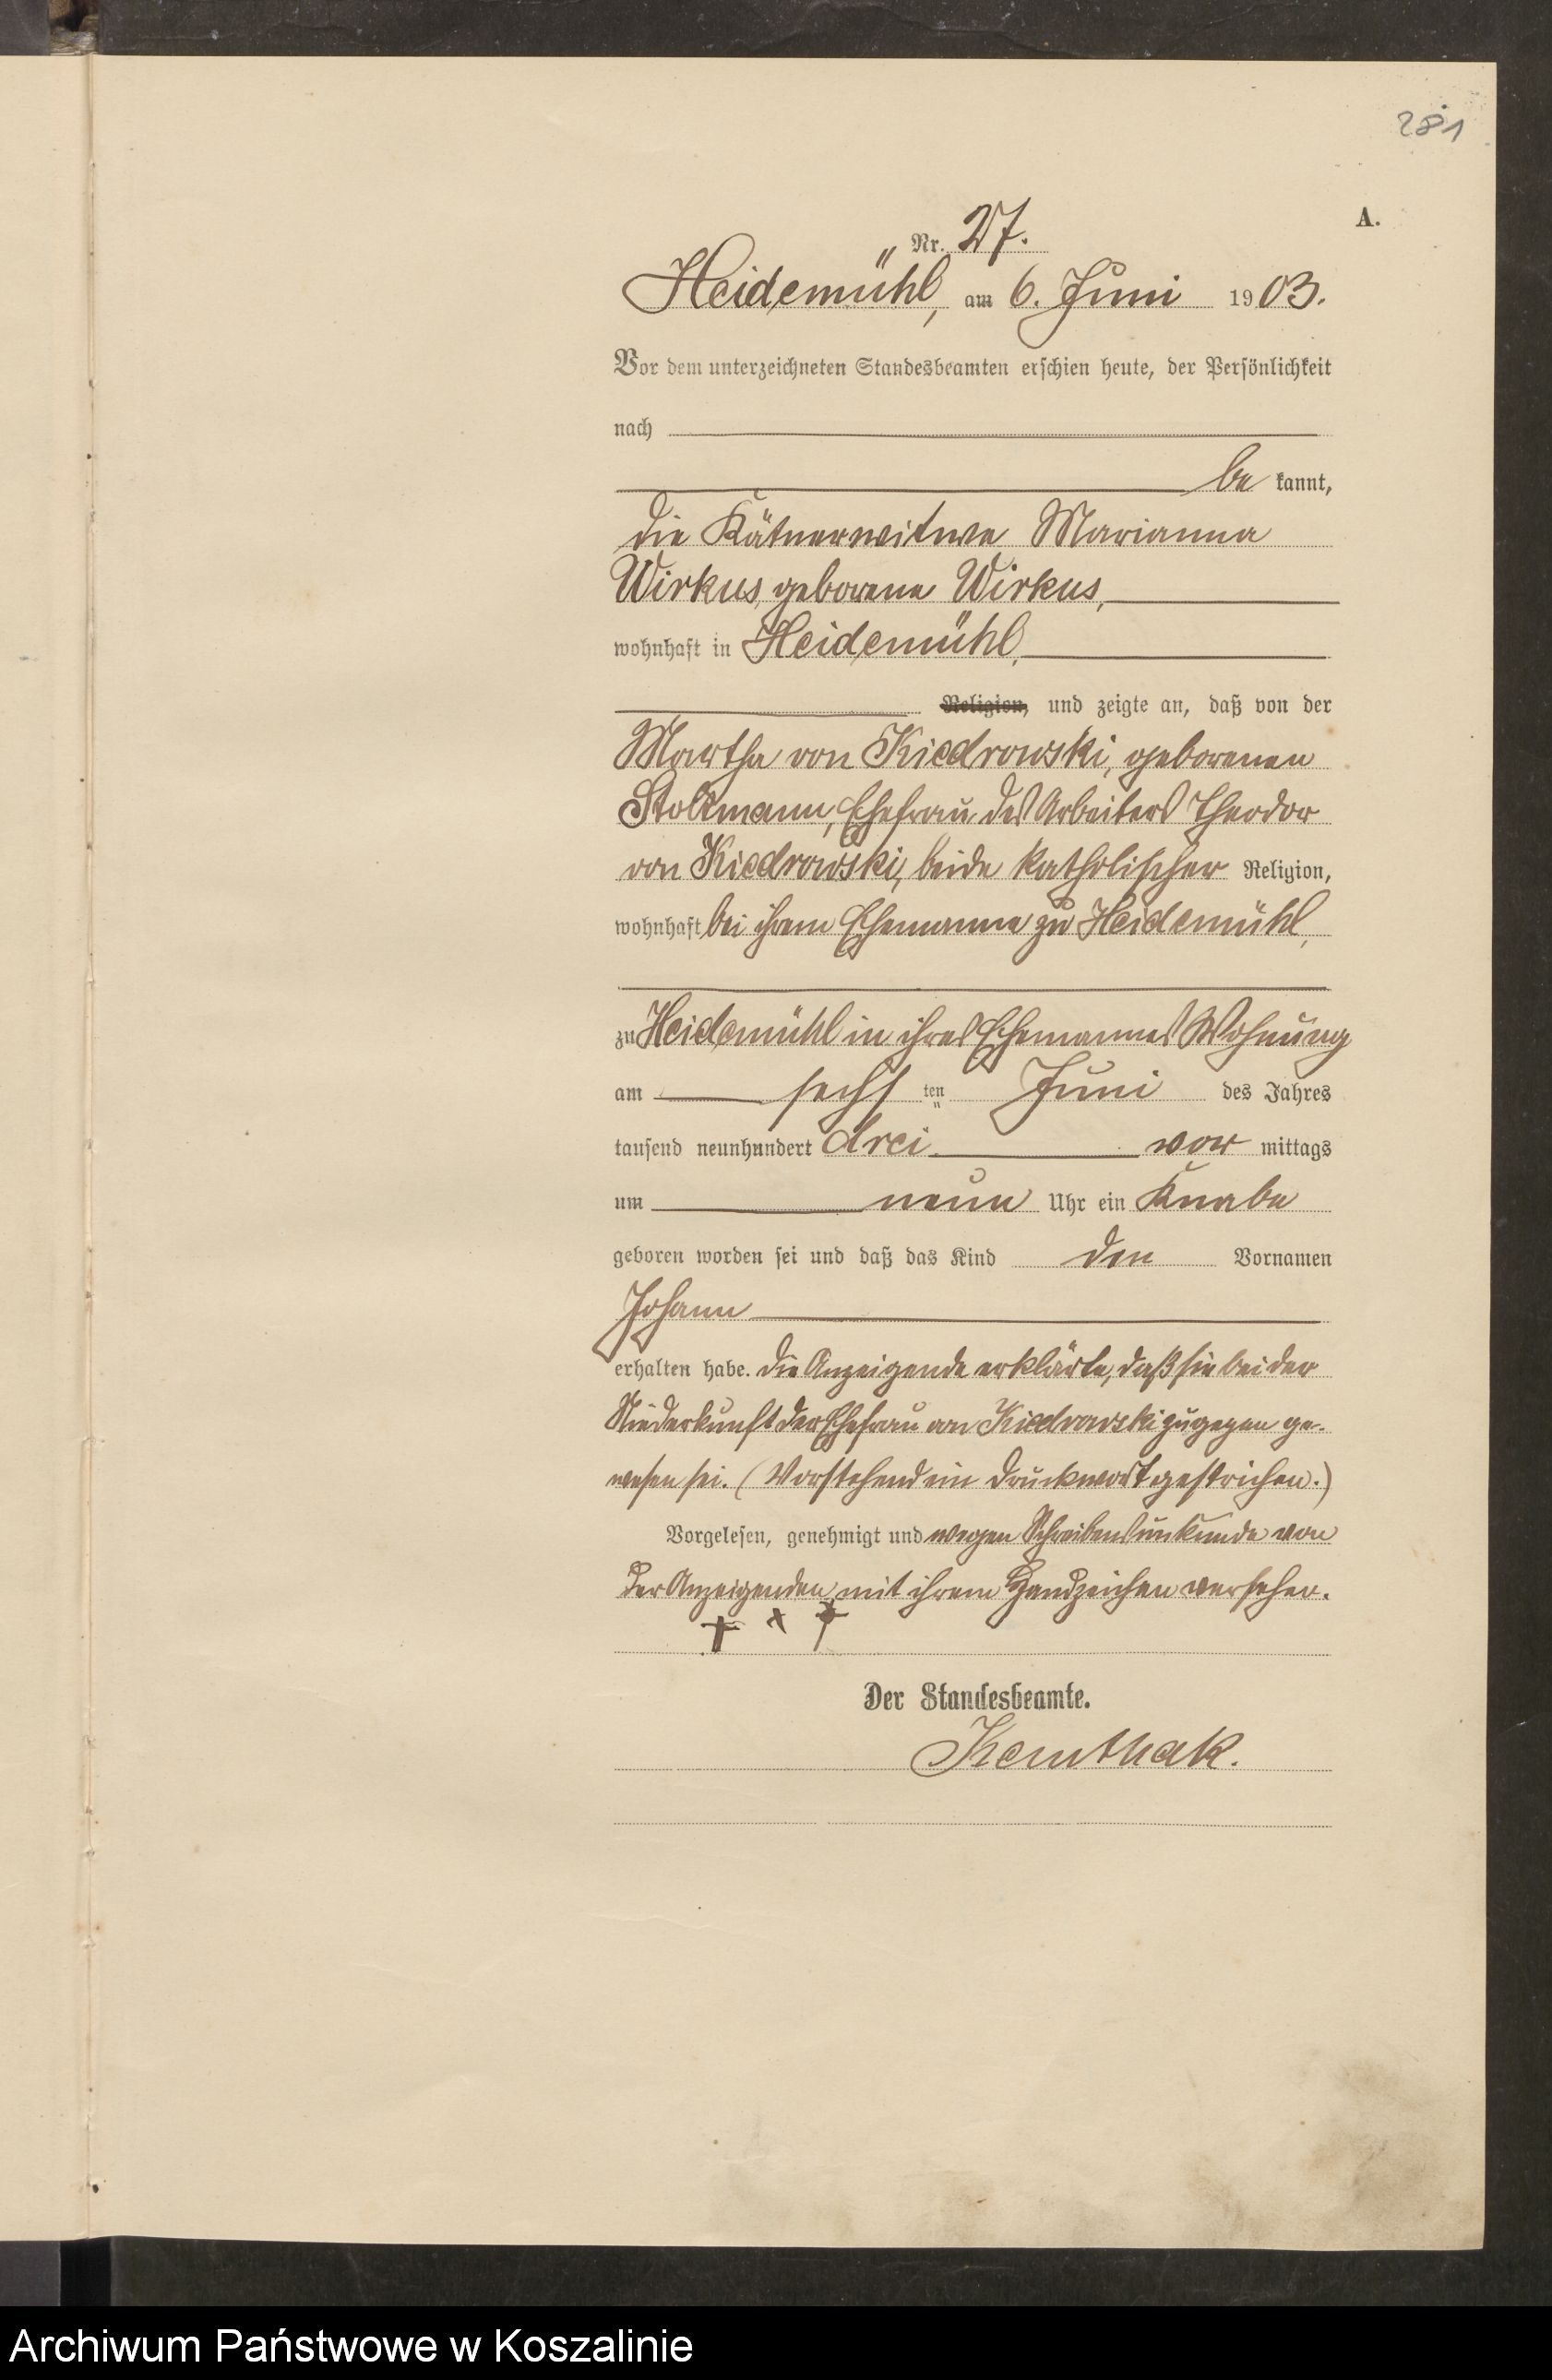 281
A.
Nr. 27.
Heidemühl, am 6. Juni 1903.
Vor dem unterzeichneten Standesbeamten erschien heute, der Persönlichkeit
nach
be kannt,
die Kätnerwitwe Marianna
Wirkus, geborene Wirkus,
wohnhaft in Heidemühl,
Religion, und zeigte an, daß von der
Martha von Kiedrowski, geborenen
Stoltmann, Ehefrau des Arbeiters Theodor
von Kiedrowski, beide katholischer Religion,
wohnhaft bei ihrem Ehemanne zu Heidemühl,
zu Heidemühl in ihres Ehemannes Wohnung
am sechs ten Juni des Jahres
tausend neunhundert drei vor mittags
um neun Uhr ein Knabe
geboren worden sei und daß das Kind den Vornamen
Johann
erhalten habe. Die Anzeigende erklärte, daß sie bei der
Niederkunft der Ehefrau von Kiedrowski zugegen ge-
wesen sei. (Vorstehend ein Druckwort gestrichen.)
Vorgelesen, genehmigt und wegen Schreibensunkunde von
der Anzeigenden mit ihrem Handzeichen versehen.
+ + +
Der Standesbeamte.
Kemthak.
Archiwum Państwowe w Koszalinie